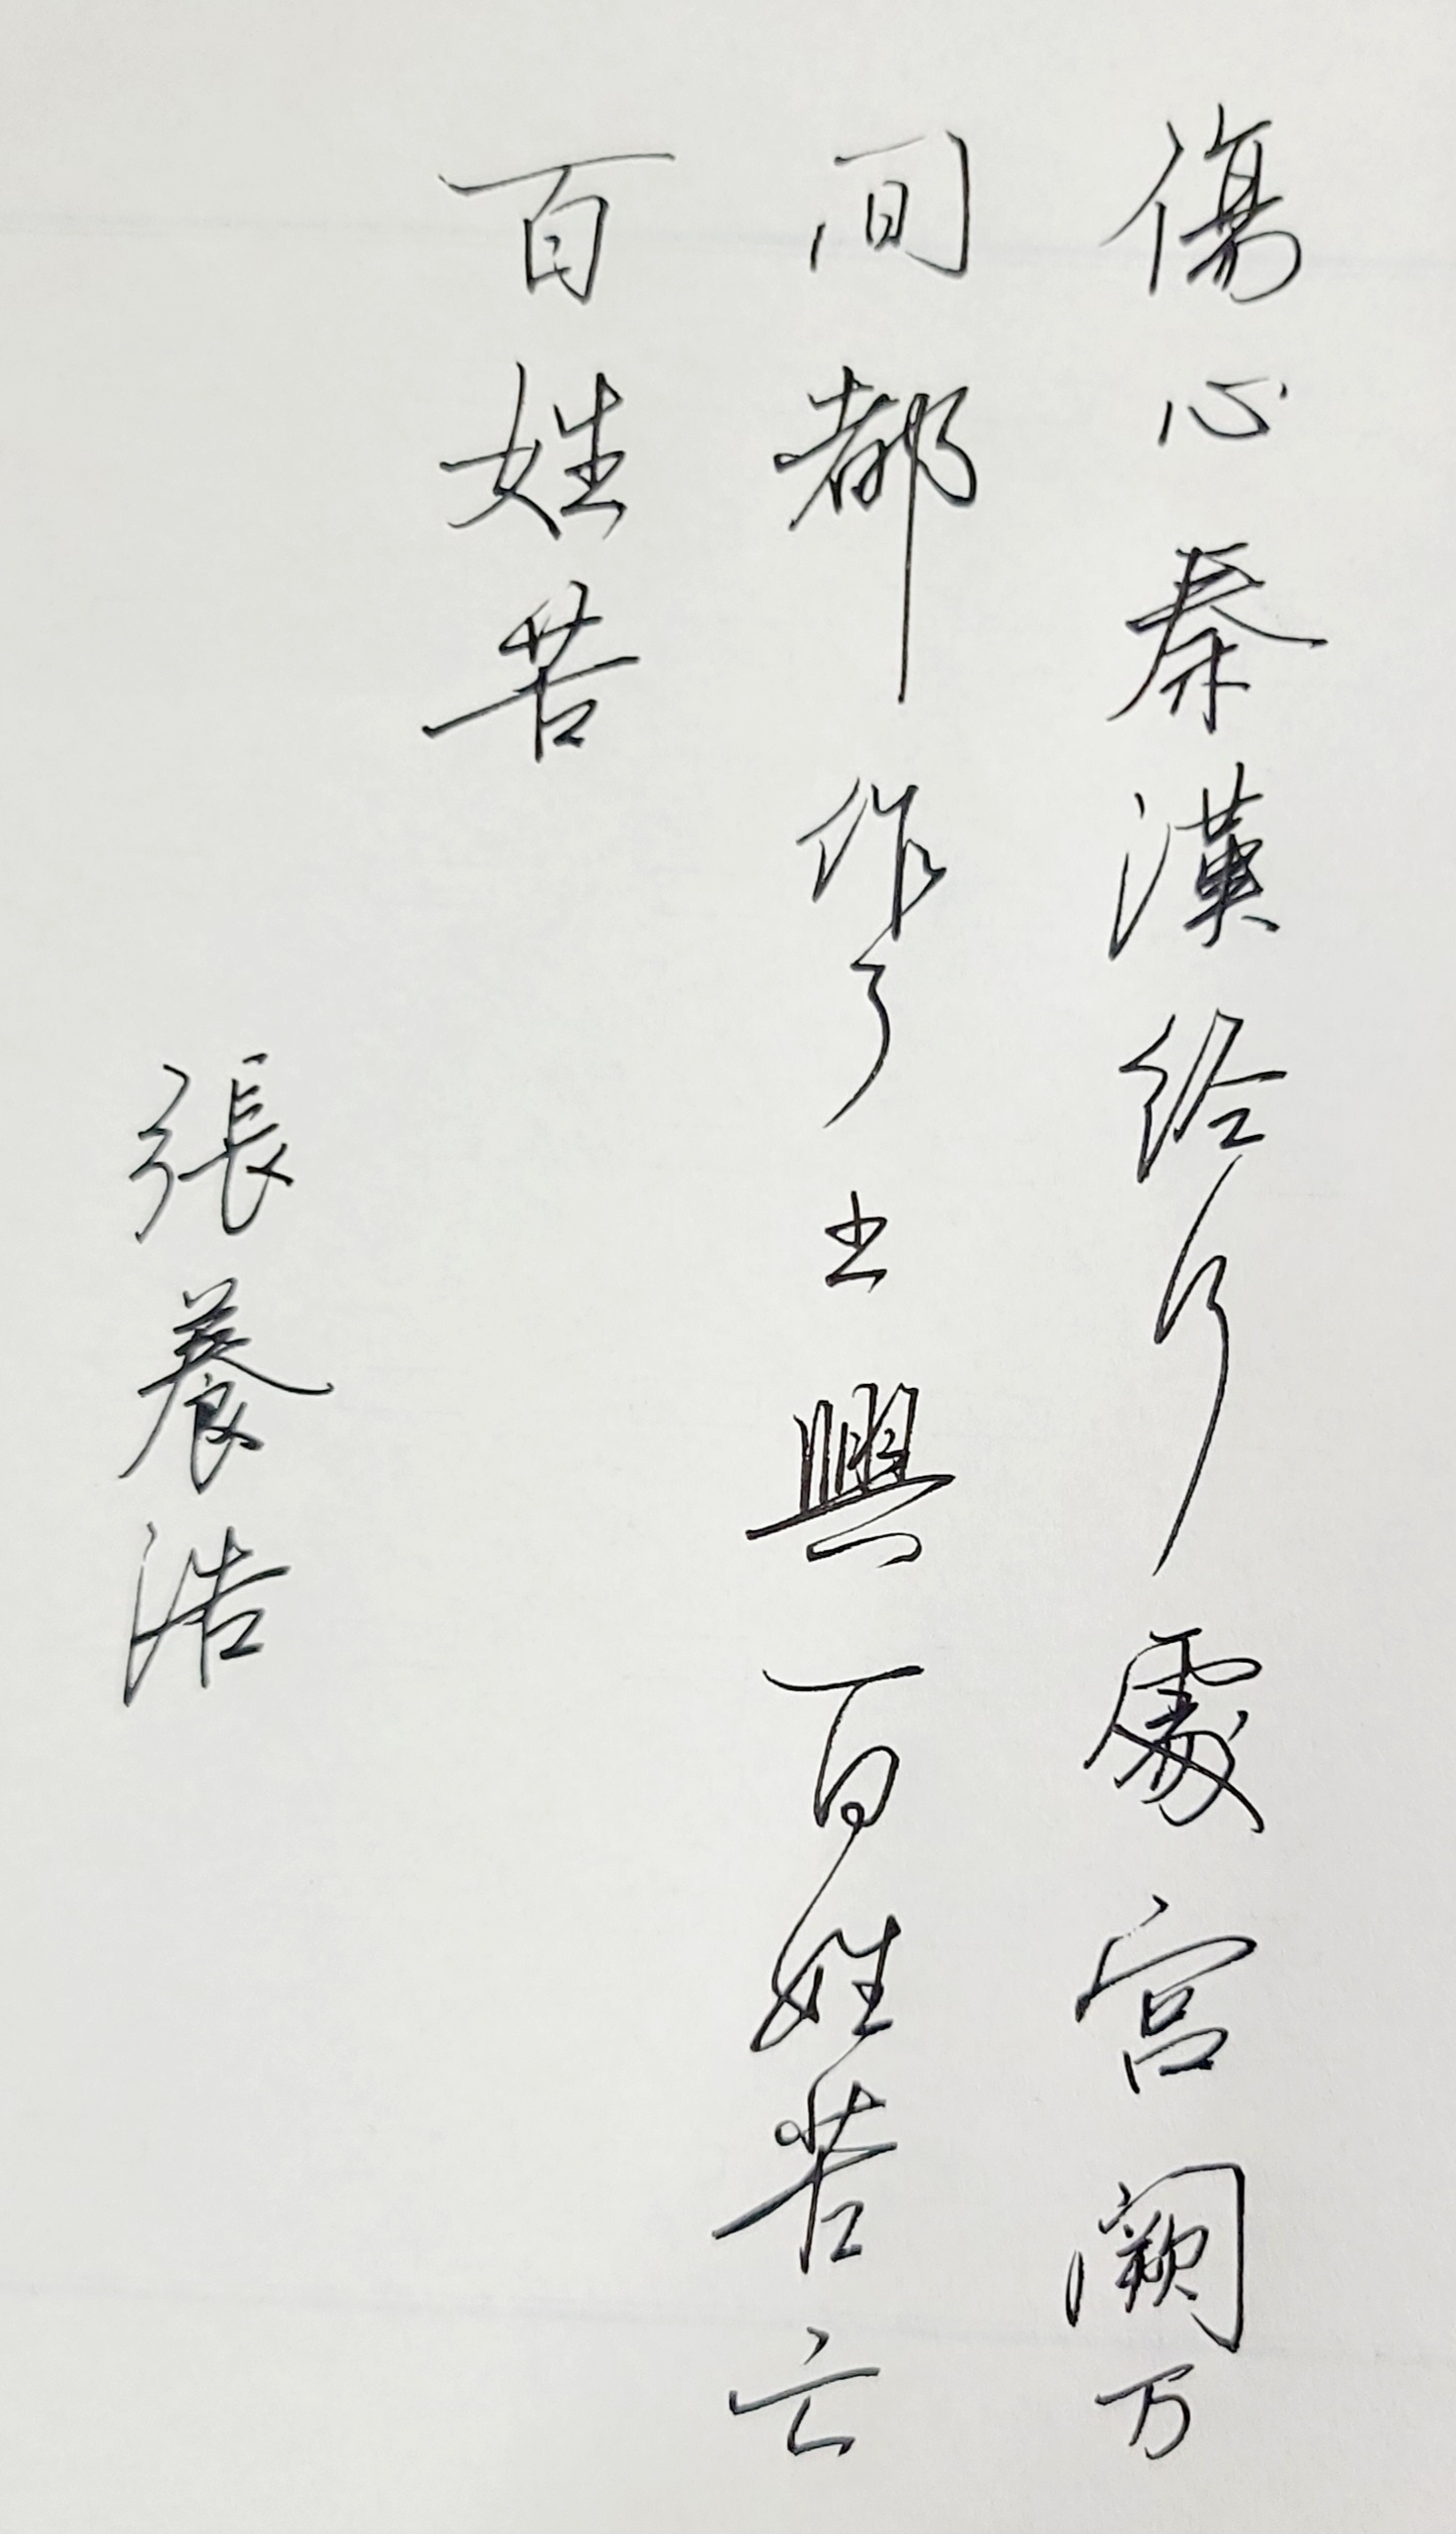 傷心秦漢经行處宫阙万
间都作了土興百姓苦亡
百姓苦
張養浩